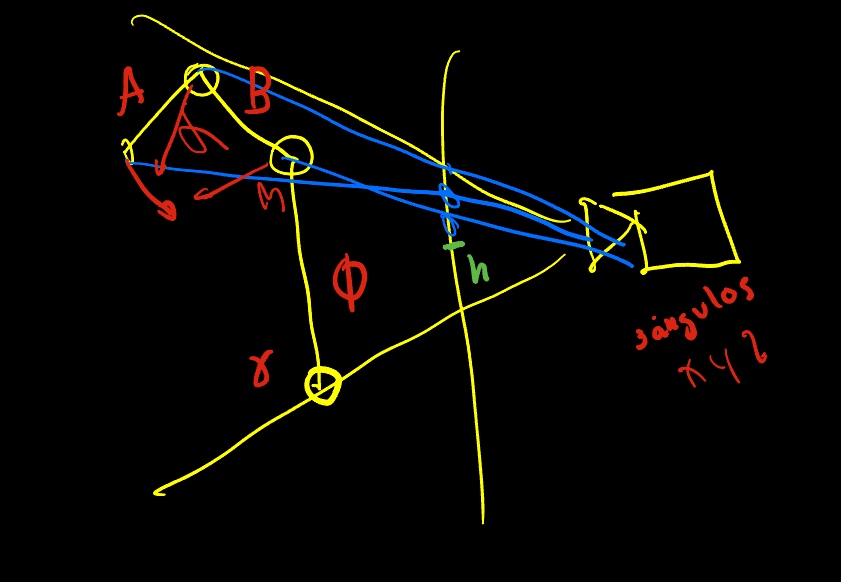 A
B
h
ϕ
γ
3 ángulos
x y z